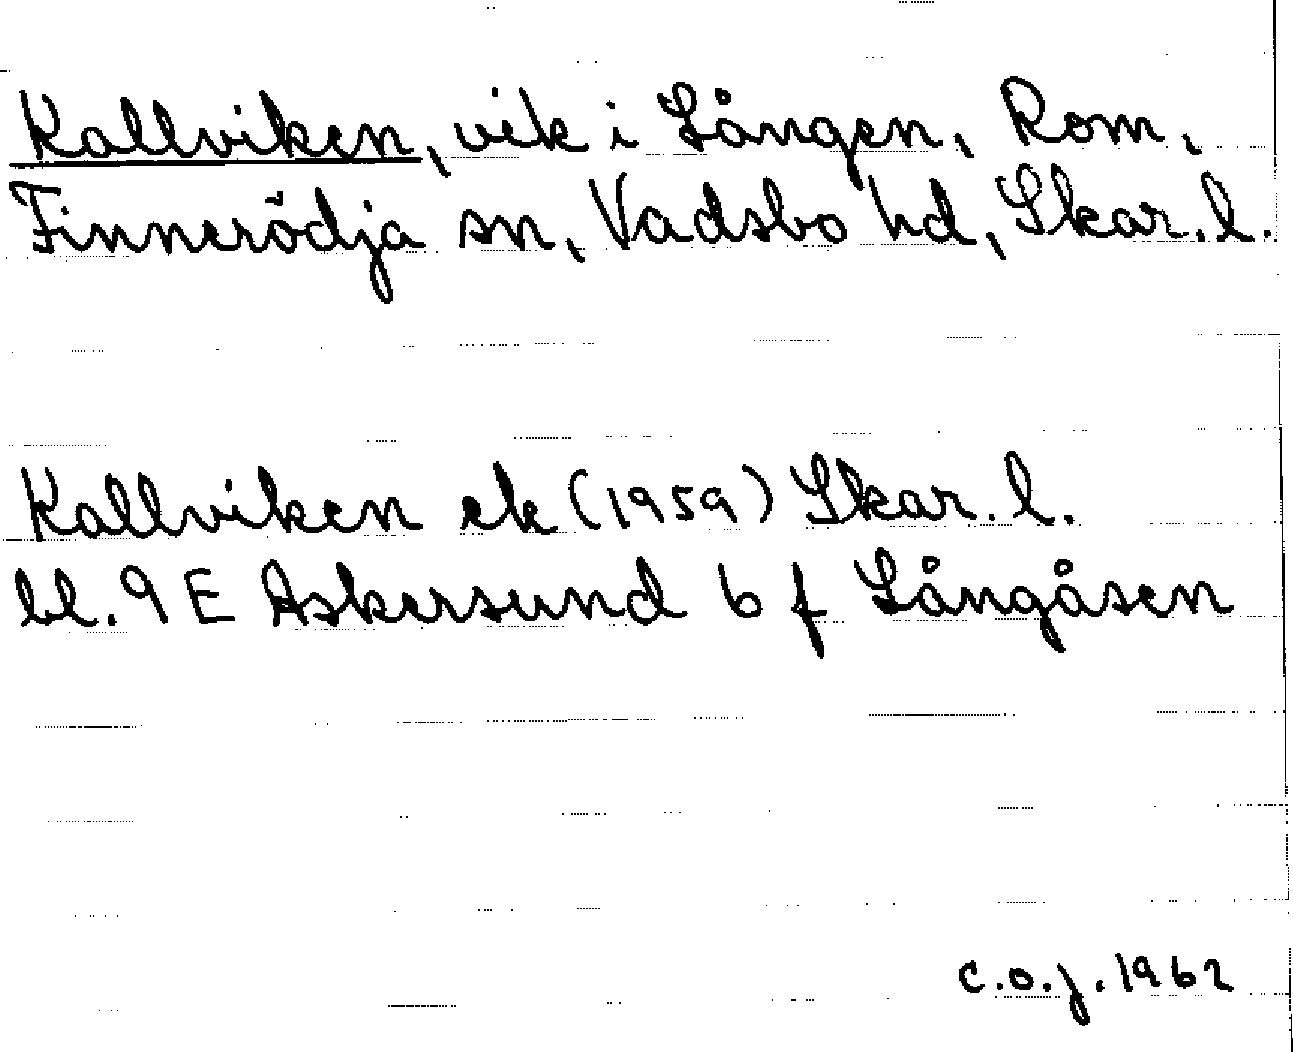 Kallviken, vik i Lången, Rom,
Finnerödja sn, Vadsbo hd, Skar. l.
Kallviken ek (1959) Skar. l.
bl. 9 E Askersund 6 f Långåsen
C.O.J. 1962